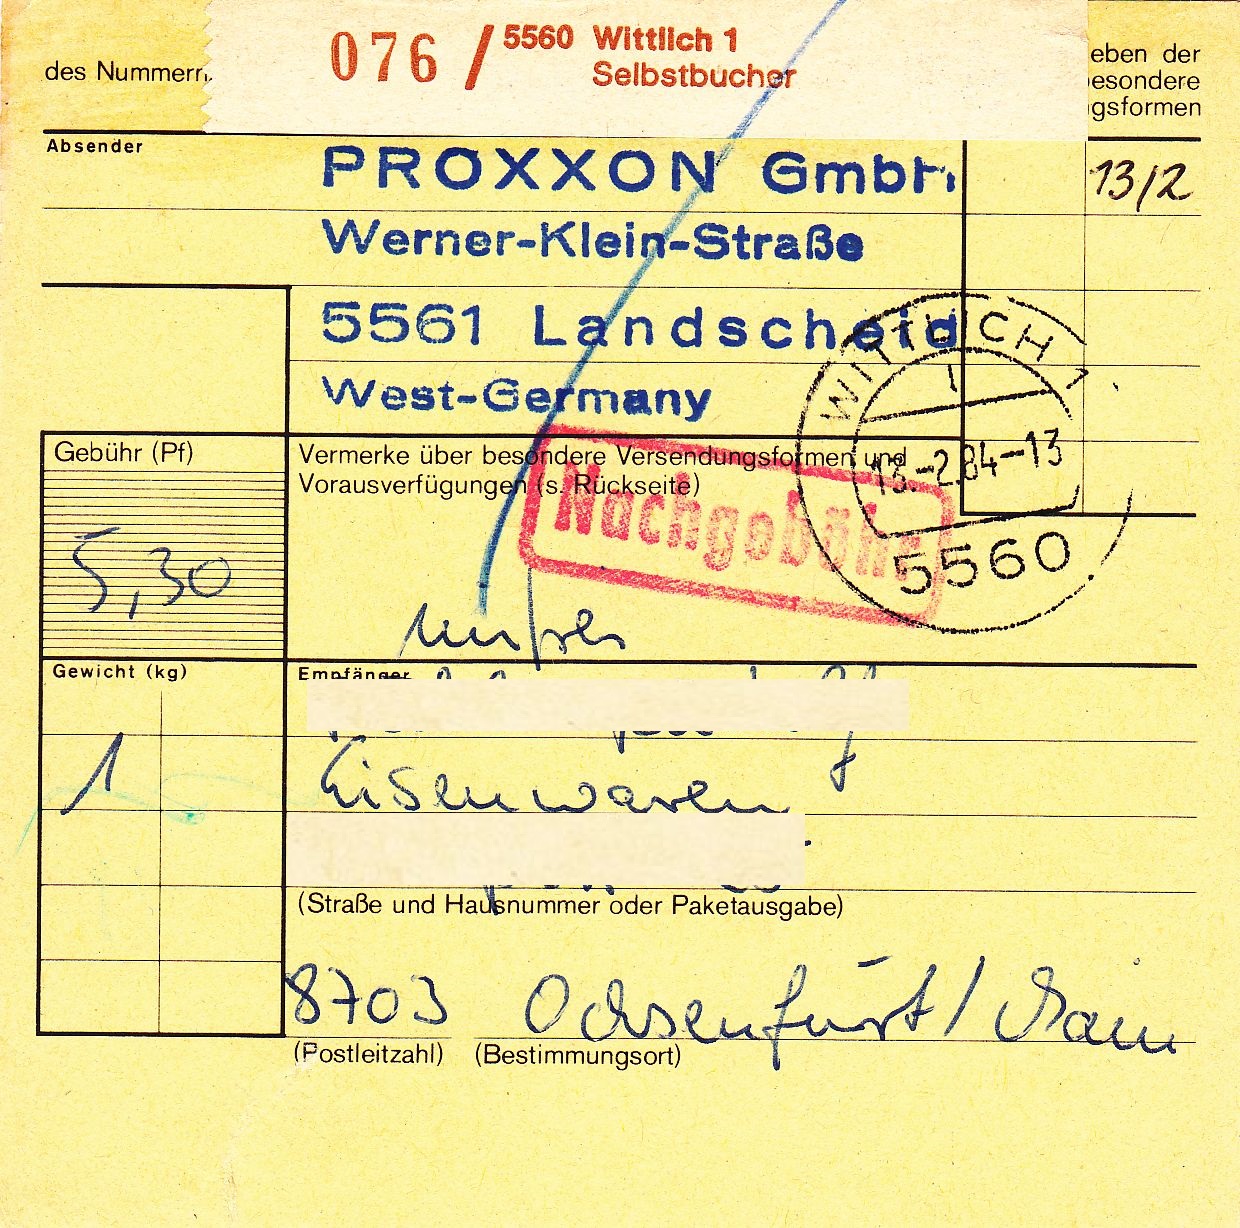 076 / 5560 Wittlich 1
Selbstbucher
des Nummern
eben der
esondere
gsformen
Absender
PROXXON GmbH
13/2
Werner-Klein-Straße
5561 Landscheid
West-Germany
WITTLICH 1
13.-2.84-13
5560
Gebühr (Pf)
Vermerke über besondere Versendungsformen und
Vorausverfügungen (s. Rückseite)
Nachgebühr
5,30
Gewicht (kg)
Empfänger
1
Eisenwaren
(Straße und Hausnummer oder Paketausgabe)
8703 Ochsenfurt / Main
(Postleitzahl) (Bestimmungsort)